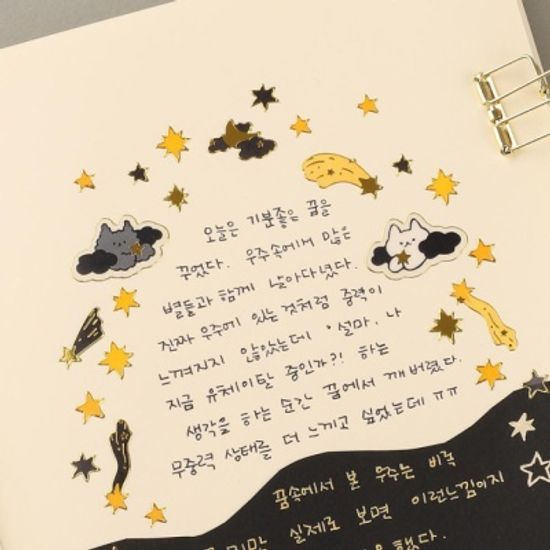 오늘은 기분좋은 꿈을
꾸었다. 우주속에서 많은
별들과 함께 날아다녔다.
진짜 우주에 있는것처럼 중력이
느껴지지 않았는데 '설마, 나
지금 유체이탈 중인가?! 하는
생각을 하는 순간 꿈에서 깨버렸다.
무중력 상태를 더 느끼고 싶었는데 ㅠㅠ
꿈속에서 본 우주는 비록
실제로 보면 이런느낌이지
했다.